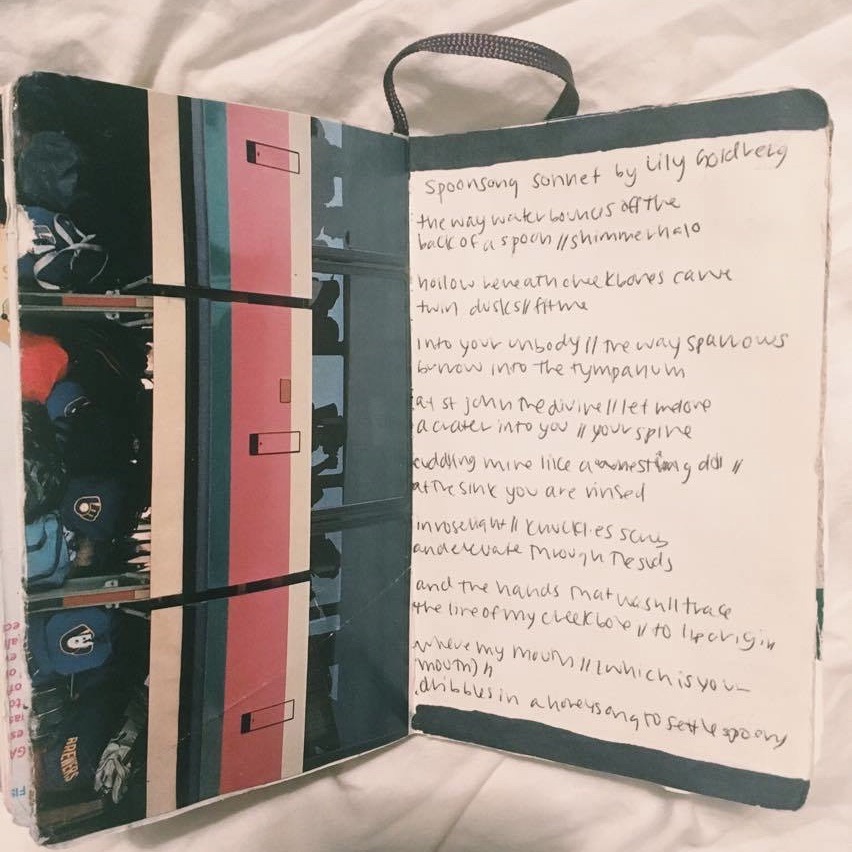 spoonsong sonnet by Lily Goldberg
the way water bounces off the
back of a spoon // shimmerhalo
hollow beneath cheekbones carve
twin dusks // fit me
into your unbody // the way sparrows
burrow into the tympanum
at st john the divine // let me
a crater into you // your spine
cuddling mine like a nesting doll //
at the sink you are rinsed
in roselight // knuckles scrub
and elevate through the suds
and the hands that wash // trace
the line of my cheekbone // to the origin
where my mouth // (which is your
mouth) //
dribbles in a honeysong to settle spoony
BREWERS
GA